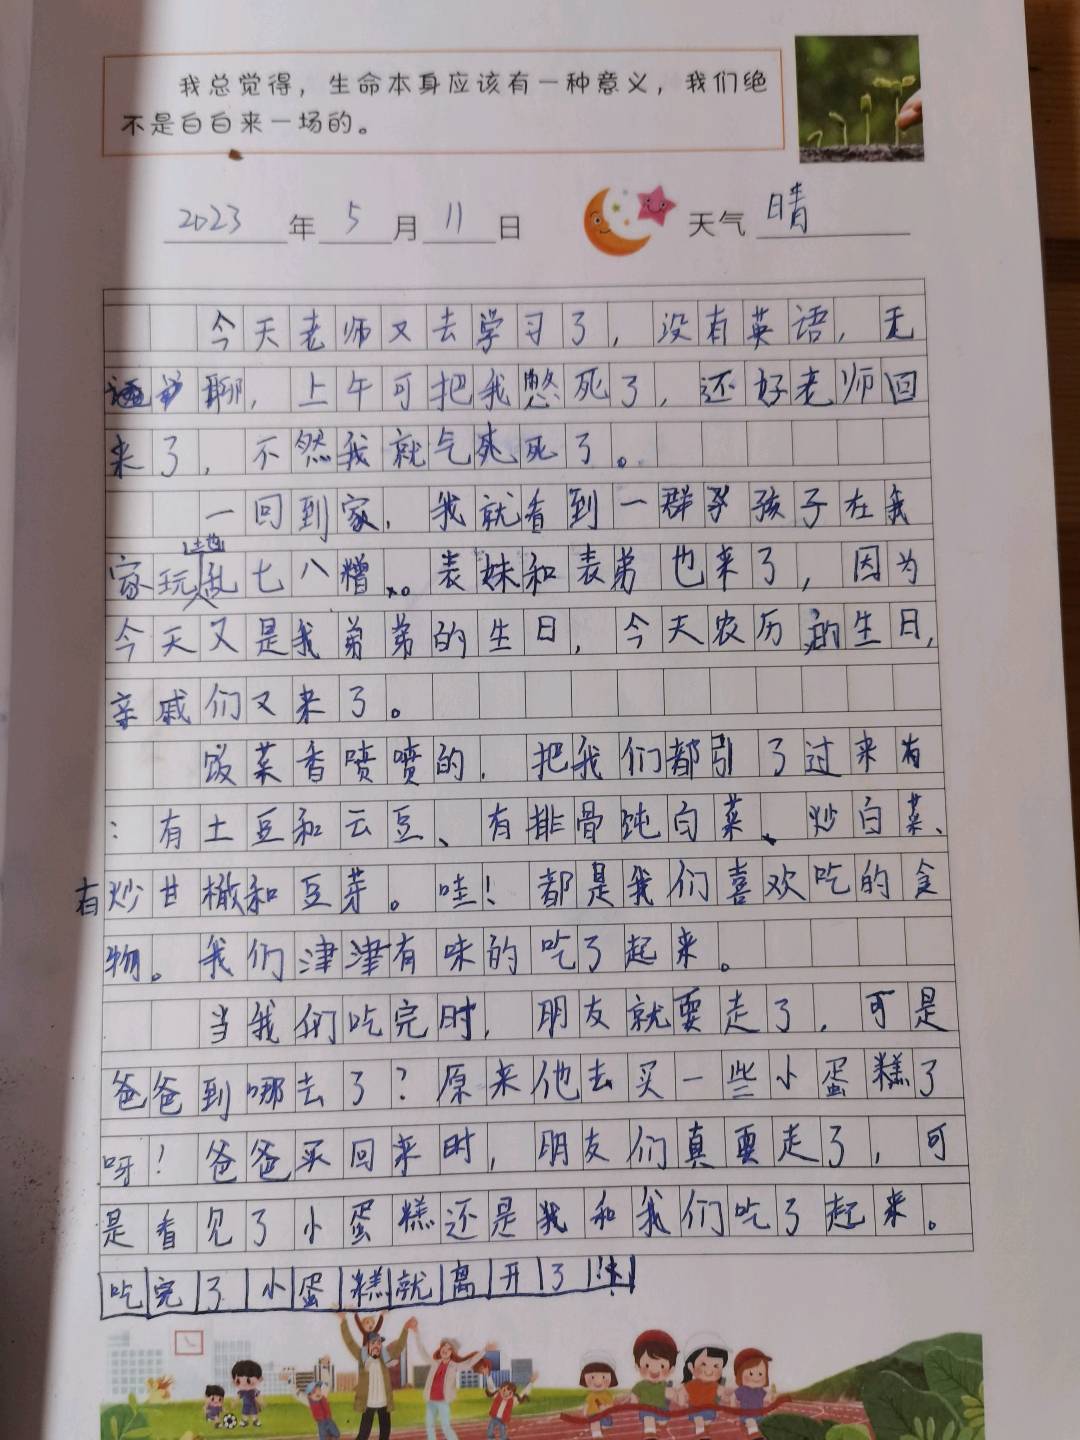 我总觉得，生命本身应该有一种意义，我们绝
不是白白来一场的。
2023年5月11日 天气 晴
今天老师又去学习了，没有英语，无
聊，上午可把我憋死了，还好老师回
来了，不然我就气死了。
一回到家，我就看到一群孩子在我
家玩乱七八糟。表妹和表弟也来了，因为
今天又是我弟弟的生日，今天农历的生日，
亲戚们又来了。
饭菜香喷喷的，把我们都引了过来有
：有土豆和云豆、有排骨炖白菜、炒白菜、
有炒甘橄和豆芽。哇！都是我们喜欢吃的食
物。我们津津有味的吃了起来。
当我们吃完时，朋友就要走了，可是
爸爸到哪去了？原来他去买一些小蛋糕了
呀！爸爸买回来时，朋友们真要走了，可
是看见了小蛋糕还是我和我们吃了起来。
吃完了小蛋糕就离开了